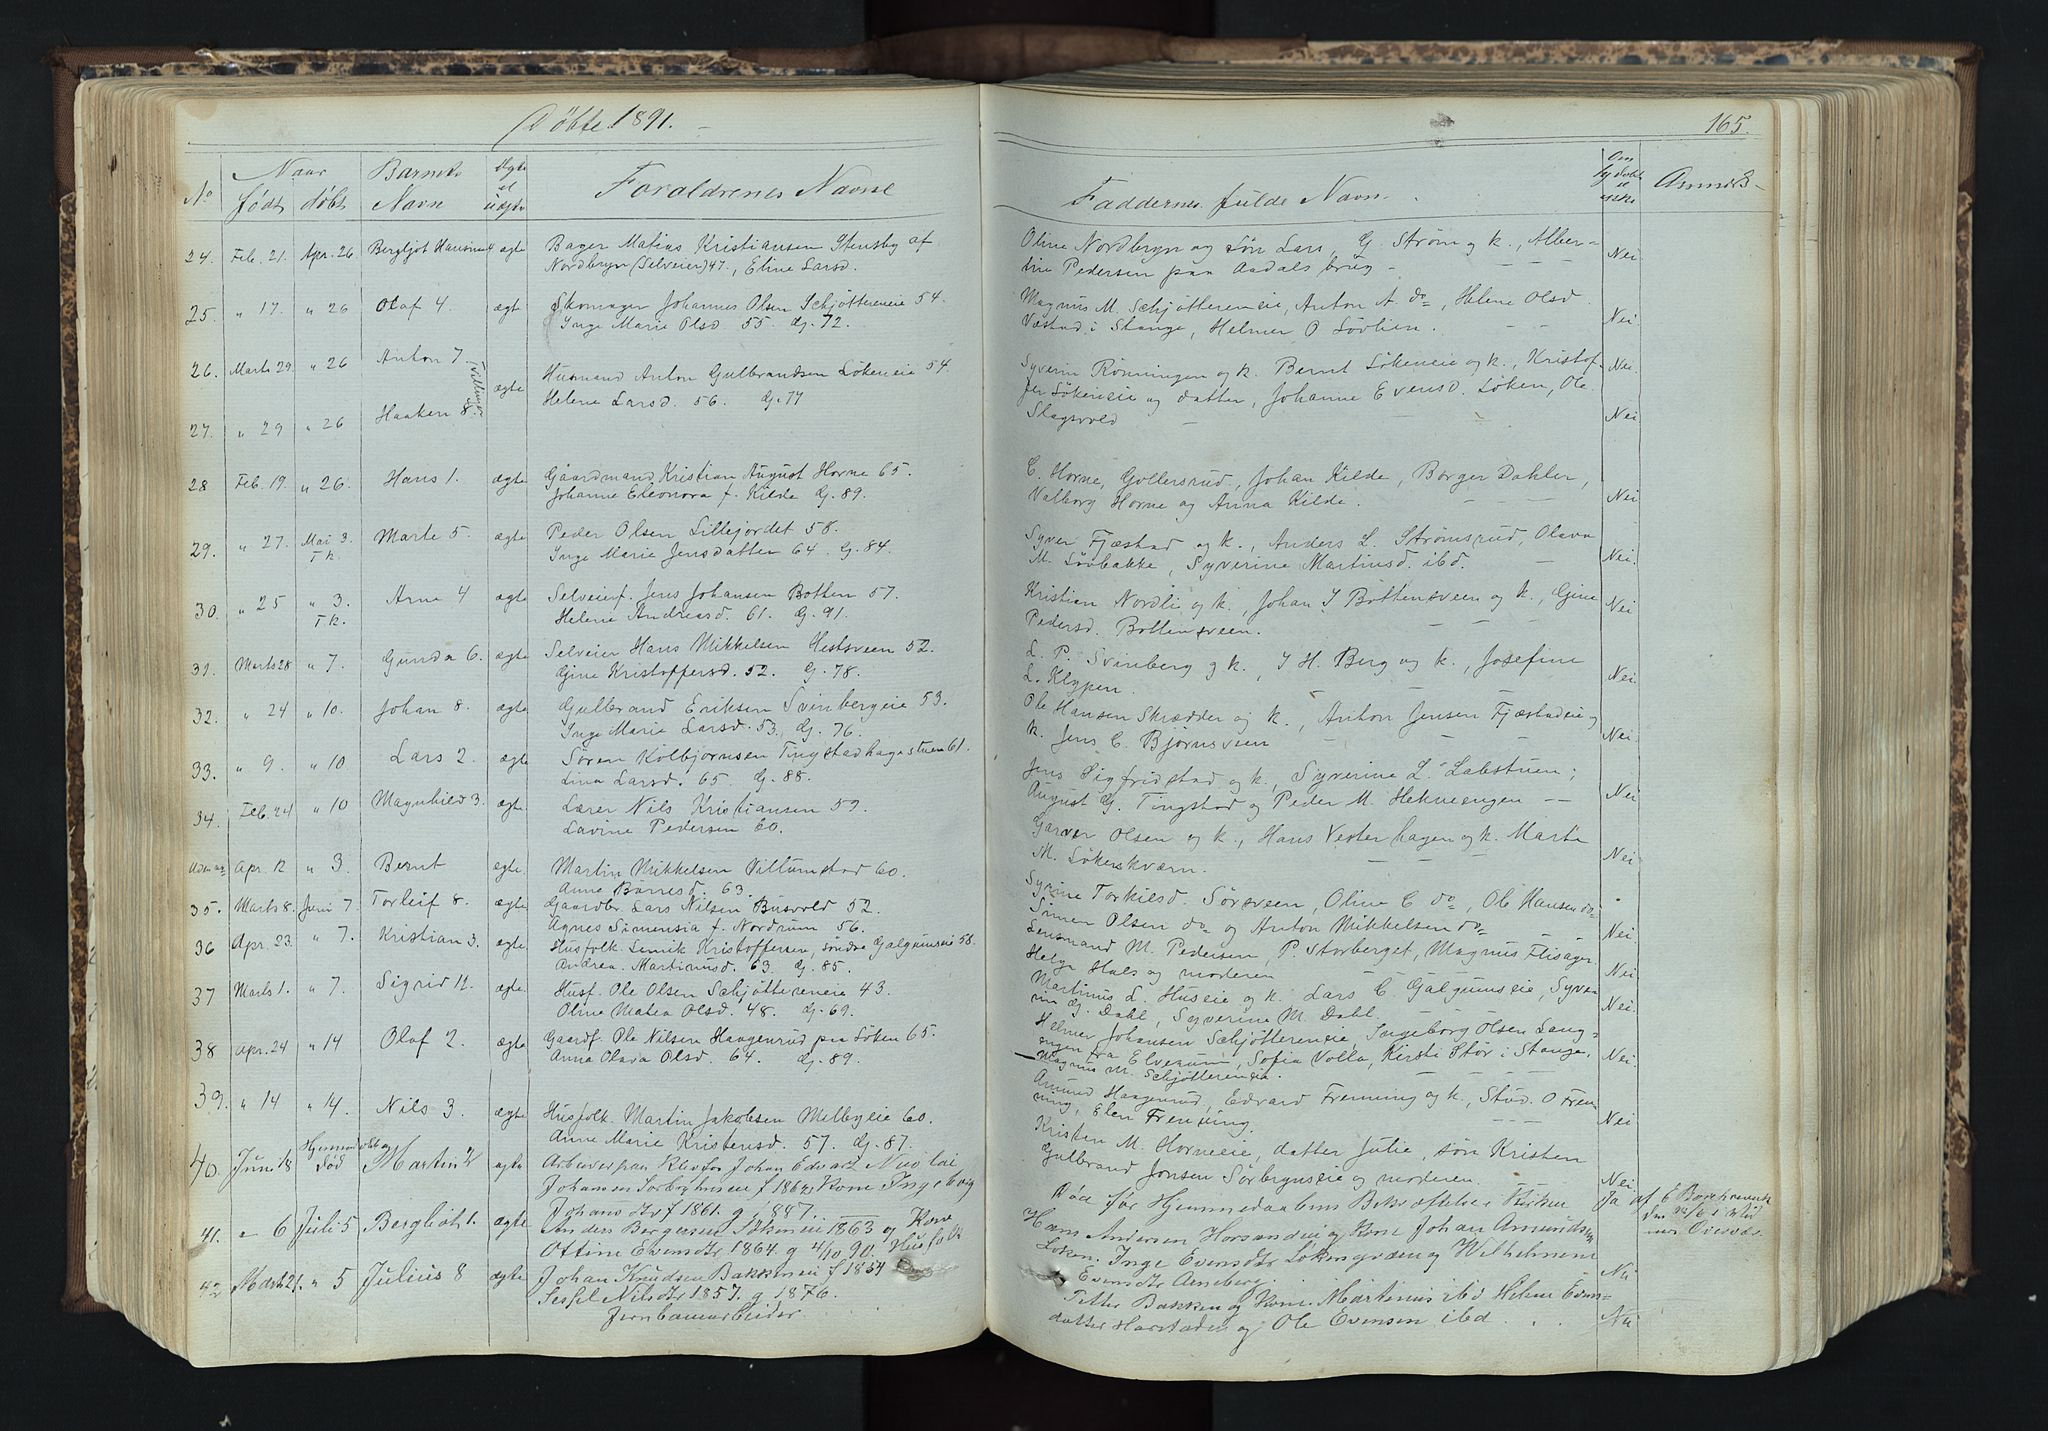 Døbte 1891.
No
Naar
født
døbt
Barnets
Navn
Ægte
el
uægte
Forældrenes Navne
24. Feb. 21. Apr. 26 Bergljot Hansine 4 ægte Bager Matias Kristiansen Stensby af
Nordbryn (Selveier) 47., Eline Larsd.
25. " 17. " 26 Olaf 4. ægte Skomager Johannes Olsen Schjøttereneie 54.
Inge Marie Olsd. 55. G. 72.
26. Marts 29. " 26 Anton 7. Tvillinger ægte Husmand Anton Gulbrandsen Løkeneie 54.
Helene Larsd. 56. G. 77
27. " 29 " 26 Haaken 8.
28 Feb. 19. " 26. Hans 1. ægte Gaardmand Kristian August Horne 65.
Johanne Eleonora f. Kilde G. 89.
29. " 27. Mai 3. Marte 5. ægte Peder Olsen Lillejordet 58.
T.k. Inge Marie Jensdatter 64. G. 84.
30. " 25 " 3. Arne 4 ægte Selveierf. Jens Johansen Botten 57.
T.k. Helene Andreasd. 61. G. 91.
31. Marts 28 " 7. Gunda 6. ægte Selveier Hans Mikkelsen Hestsveen 52.
Gine Kristoffersd. 52. G. 78.
32. " 24 " 10. Johan 8. ægte Gulbrand Eriksen Svinbergeie 53.
Inge Marie Larsd. 53. G. 76.
33. " 9. " 10 Lars 2. ægte Søren Kolbjørnsen Tingstadhagestuen 61.
Lina Larsd. 65. G. 88.
34. Feb. 24 " 10 Magnhild 3. ægte Lærer Nils Kristiansen 59.
Lavine Pedersen 60.
Apr. 12 " 3. Bernt ægte Martin Mikkelsen Villumstad 60.
Anne Børresd. 63.
35. Marts 8. Juni 7. Torleif 8. ægte Gaardbr. Lars Nilsen Busvold 52.
Agnes Simensia f. Nordrum 56.
36 Apr. 23. " 7. Kristian 3. ægte Husfolk Lemik Kristoffersen, søndre Galgumseie 58.
Andrea Martinusd. 63. G. 85.
37 Marts 1. " 7. Sigrid 12. ægte Husf. Ole Olsen Schjøttereneie 43.
Oline Matea Olsd. 48. G. 69.
38 Apr. 24 " 14 Olaf 2. ægte Gaardf. Ole Nilsen Haagenrud paa Løken 65.
Anna Olava Olsd. 64. G. 89.
39. " 14 " 14. Nils 3. ægte Husfolk. Martin Jakobsen Melbyeie 60.
Anne Marie Kristensd. 57. G. 87.
40. Juni 18 Hjemmedøbt og død Martin 2 ægte Arbeider paa Klevfos Johan Edvart Nicolai
Johansen Sørbrynseie f 1862 Kone Ingeborg
Johans Dtr f 1861. g. 1887.
41. " 6 Juli 5 Bergliot 1. ægte Anders Bergersen Løkeneie 1863 og Kone
Ottine Evensdtr 1864. g 4/10 90. Husfolk
42 Marts 21. " 5 Julius 8 ægte Johan Knudsen Bakkeneie f 1854
Sessel Nilsdtr 1857. g 1876.
Jernbanearbeider.
165.
Faddernes fulde Navn
Om
hjdøbt
el
ikke
Anmerk.
Oline Nordbryn og søn Lars, G. Strøm og k., Alber-
tine Pedersen paa Aadals brug - Nei
Magnus M. Schjøttereneie, Anton A. do, Helene Olsd.
Væstad i Stange, Helmer O Løvlien. Nei
Syverin Rønningen og k. Bernt Løkeneie og k., Kristof- Nei.
fer Løkeneie og datter, Johanne Evensd. Løken, Ole
Slagsvold Nei
C. Horne, Gullersrud, Johan Kilde, Borger Dahler,
Valborg Horne og Anna Kilde. Nei
Syver Fjæstad og k., Anders L. Strømsrud, Olava
M. Løvbakke, Syverine Martinsd. ibd. Nei.
Kristian Nordli og k., Johan J Bottensveen og k., Gine Nei
Pedersd. Bottensveen.
L. P. Svinberg og k. J H. Berg og k., Josefine
L. Klypen. Nei.
Ole Hansen Skrædder og k., Anton Jensen Fjæstadeie og
k. Jens C. Bjørnsveen Nei.
Jens Sigfridstad og k., Syverine L. Labstuen;
August G. Tingstad og Peder M. Hekneengen Nei
Garver Olsen og k., Hans Vesterhagen og k. Marta
M. Løkenskværn. Nei
Syrine Torkilsd. Sørsveen, Oline C do, Ole Hansen do
Simen Olsen do og Anton Mikkelsen do Nei.
Lensmand M. Pedersen, P. Storberget, Magnus Flisager.
Helge Hals og moderen Nei
Martinus L. Huseie og k. Lars C. Galgumseie, Syve-
rin G. Dahl, Syverine M. Dahl. Nei.
Helmer Johansen Schjøttereneie, Ingeborg Olsen Lang-
engen fra Elverum, Sofia Volla, Kirsti Stør i Stange, Nei.
Magnus M. Schjøttereneie.
Amund Haagenrud, Edvard Frenning og k., Stud. O Fren-
ning, Elen Frenning. Nei
Kristen M. Horneeie, datter Julie, søn Kristen
Gulbrand Jonsen Sørbrynseie og moderen. Nei
Død før Hjemmedaabens Bekræftelse i Kirken Ja af E Borchgrevink
Hans Andersen Horsandeie og Kone Johan Amundsen
Løken. Inge Evensdtr Løkengraden og Wilhelmine
Evensdtr Arneberg. Nei
Petter Bakken og Kone. Martinius ibd Helene Evens-
datter Harstaden og Ole Evensen ibd. Nei